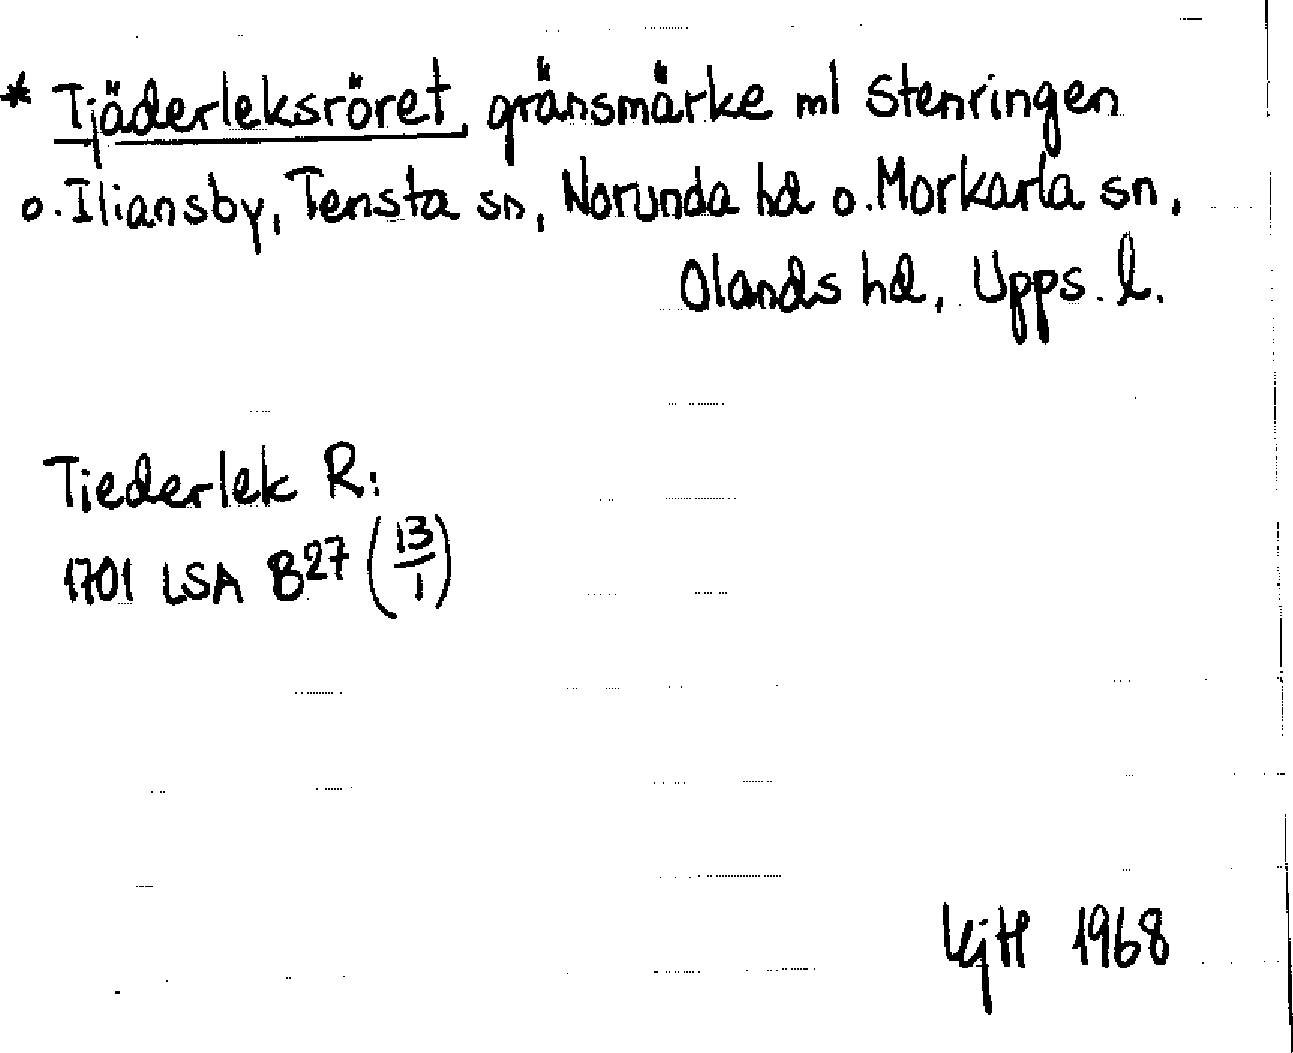 * Tjäderleksröret, gränsmärke ml Stenringen
o. Iliansby, Tensta sn, Norunda hd o. Morkarla sn,
Olands hd, Upps. l.
Tiederlek R:
1701 LSA B27 (13/1)
KjH 1968